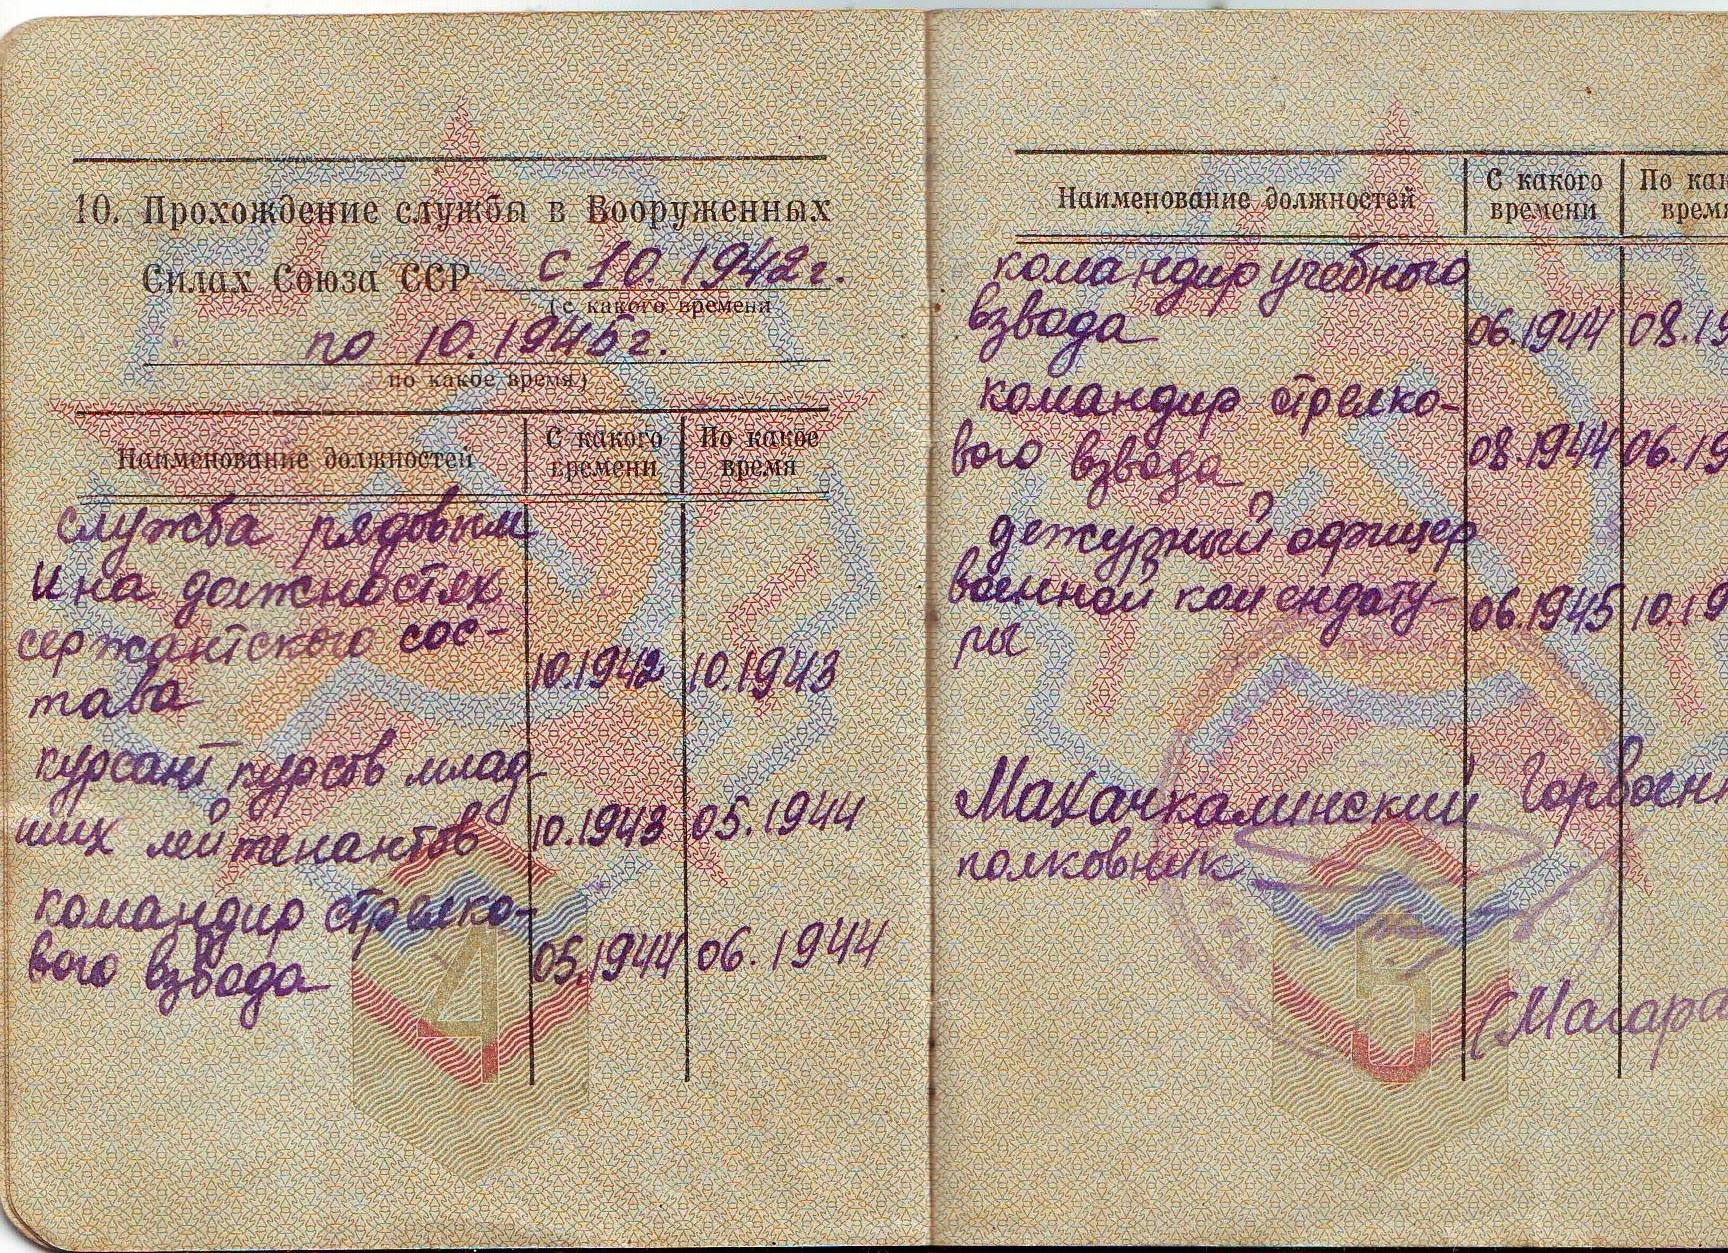 10. Прохождение службы в Вооруженных
Силах Союза ССР с 10.1942г.
(с какого времени
по 10.1945г.
по какое время)
Наименование должностей
С какого времени
По какое время
служба рядовым
и на должностях
сержантского сос-
тава 10.1942 10.1943
курсант курсов млад-
ших лейтенантов 10.1943 05.1944
командир стрелко-
вого взвода 05.1944 06.1944
4
Наименование должностей
С какого времени
По как
время
командир учебного
взвода 06.1944 08.19
командир стрелко-
вого взвода 08.1944 06.19
дежурный офицер
военной комендату- 06.1945 10.19
ры
Махачкалинский Горвоен
полковник
(Магара
5